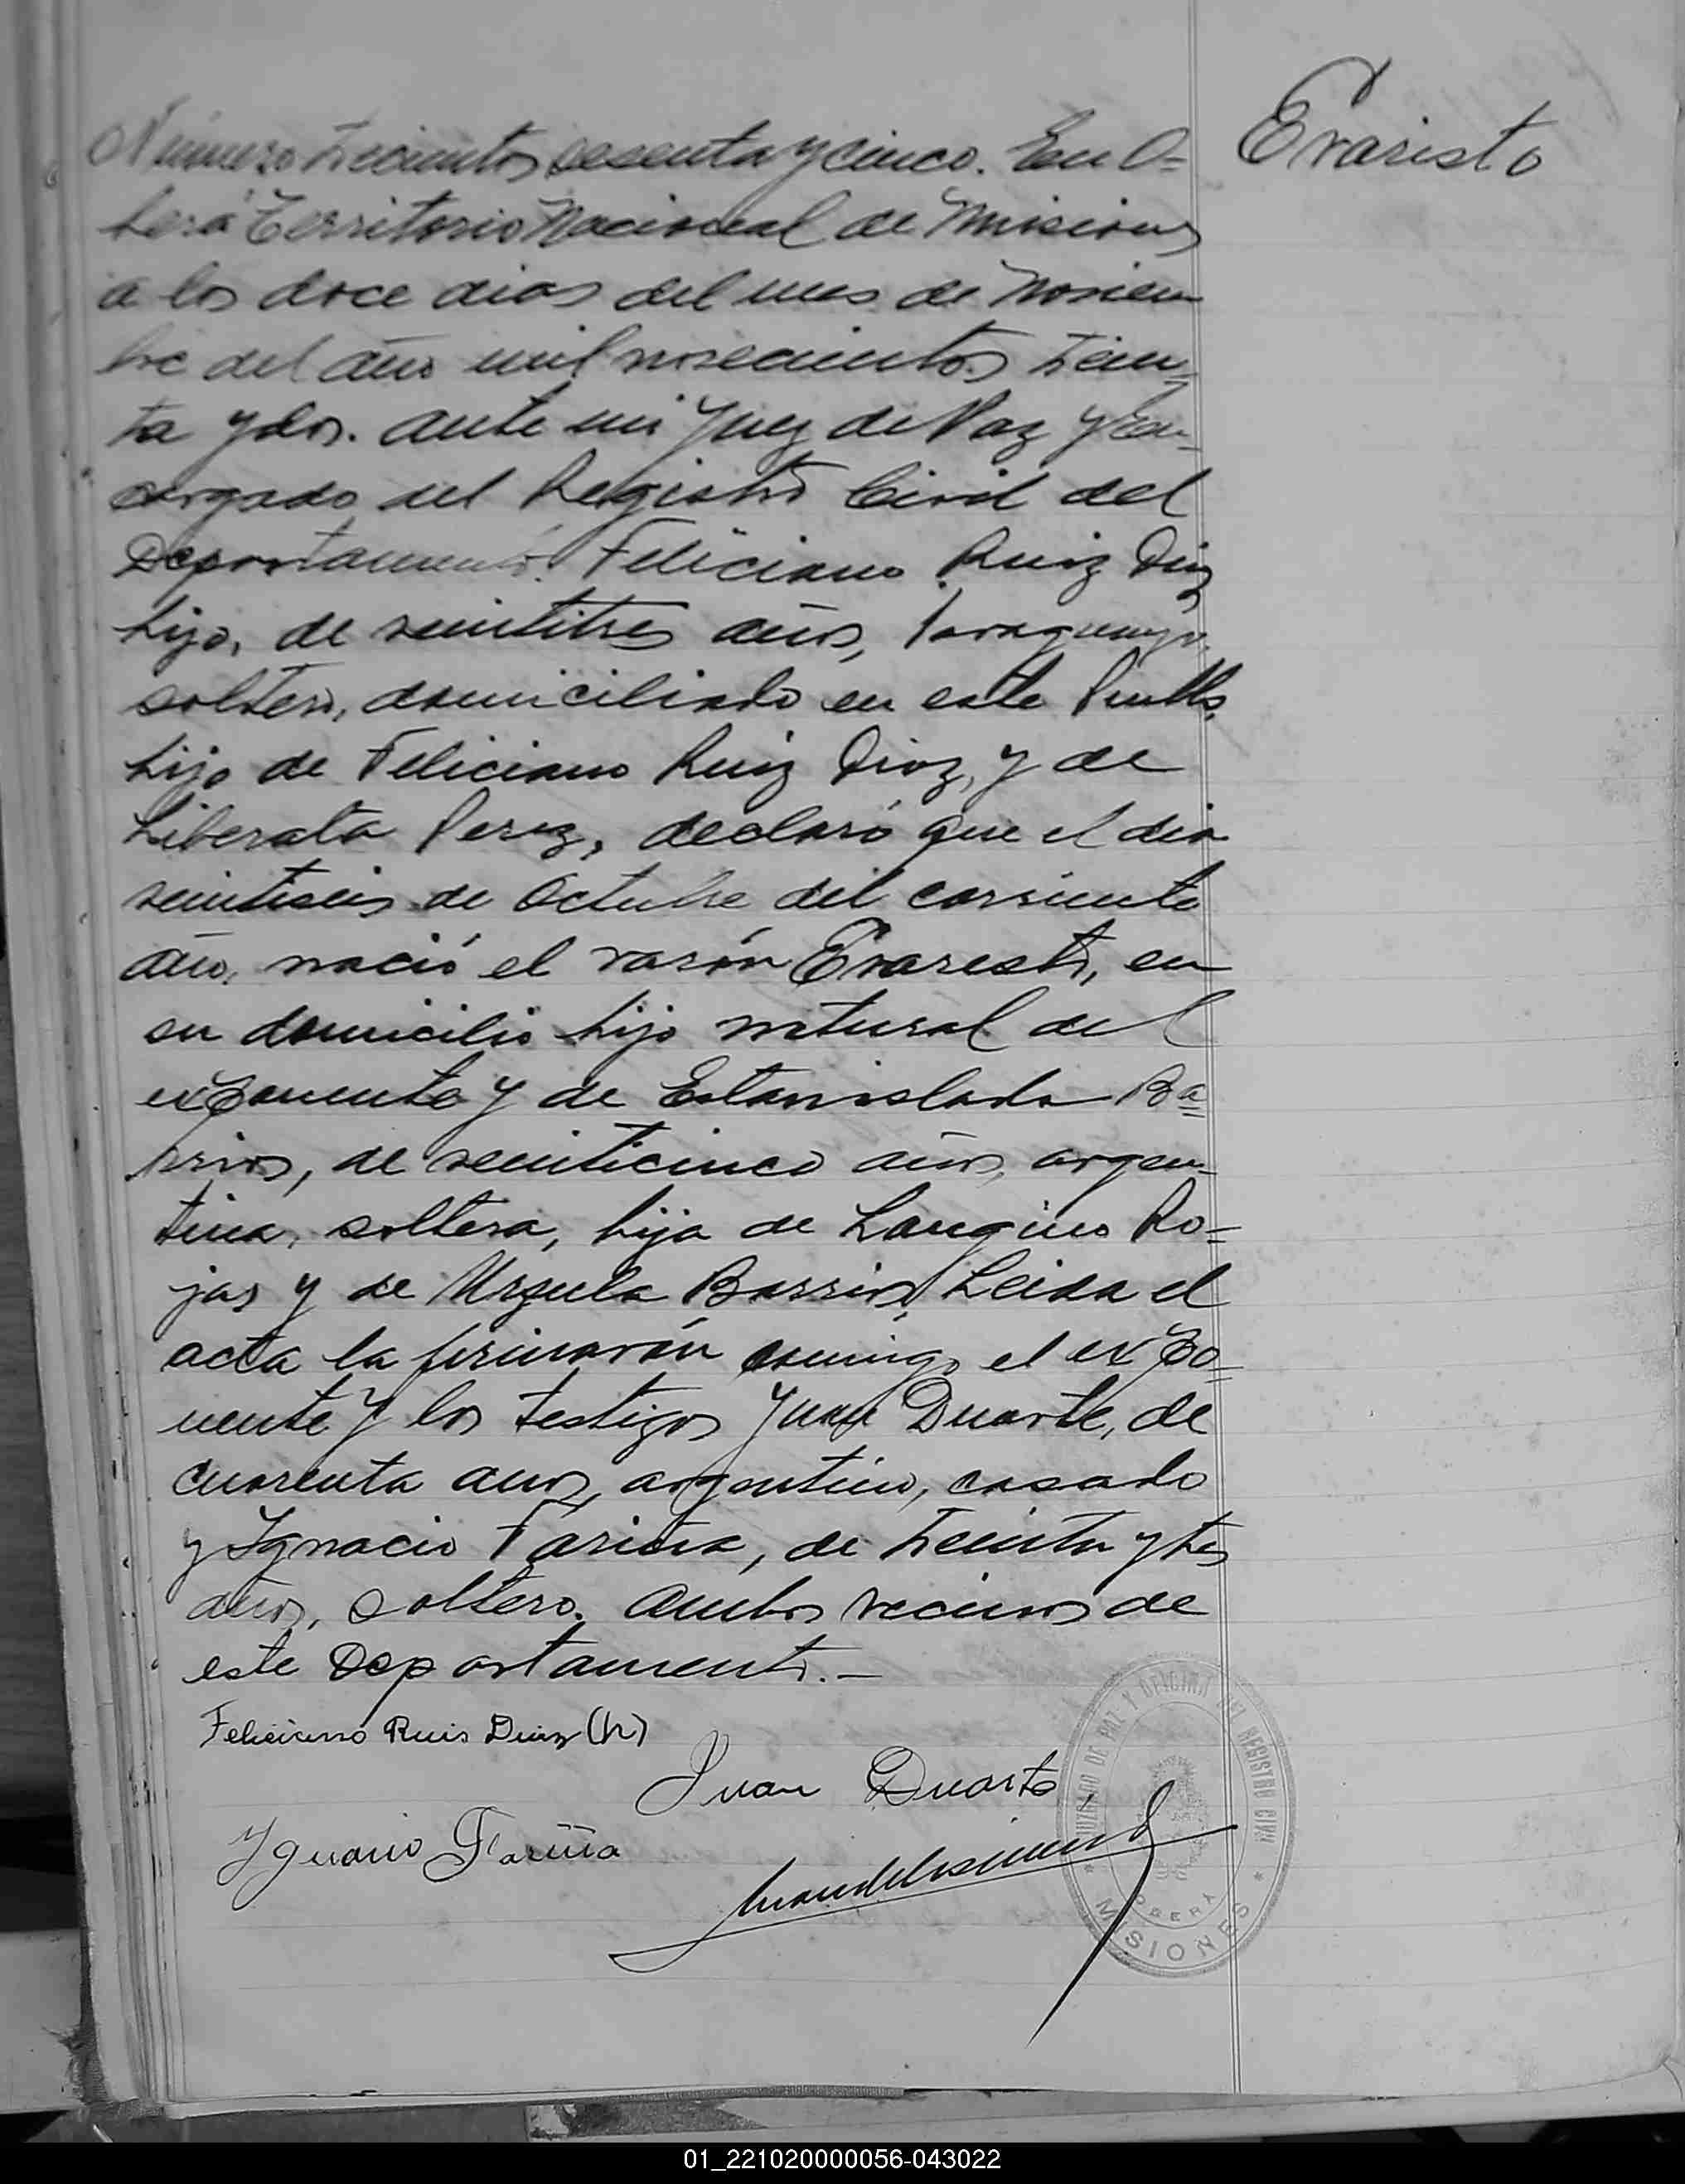 Número trecientos sesenta y cinco. En O-
Evaristo
berá Territorio Nacional de Misiones
a los doce dias del mes de Noviem
bre del año mil novecientos trein-
ta y dos. ante mi Juez de Paz y En-
cargado del Registro Civil del
Departamento. Feliciano Ruiz Diaz
hijo, de veintitres años, Paraguayo,
soltero, domiciliado en este Pueblo,
hijo de Feliciano Ruiz Diaz, y de
Liberata Perez, declaró que el dia
veintiseis de Octubre del corriente
año, nació el varón Evaristo, en
su domicilio hijo natural del
exponente y de Estanislada Ba=
rrios, de veinticinco años, argen-
tina, soltera, hija de Longino Ro=
jas y de Urzula Barrios. Leida el
acta la firmarón conmigo el expo-
nente y los testigos Juan Duarte, de
cuarenta años, argentino, casado
y Ignacio Fariña, de treinta y tres
años, soltero. Ambos vecinos de
este Departamento.-
Feliciano Ruis Diaz (h)
Juan Duarte
Ygnacio Fariña
JUZGADO DE PAZ Y OFICINA DEL REGISTRO CIVIL
OBERÁ
MISIONES
01_221020000056-043022